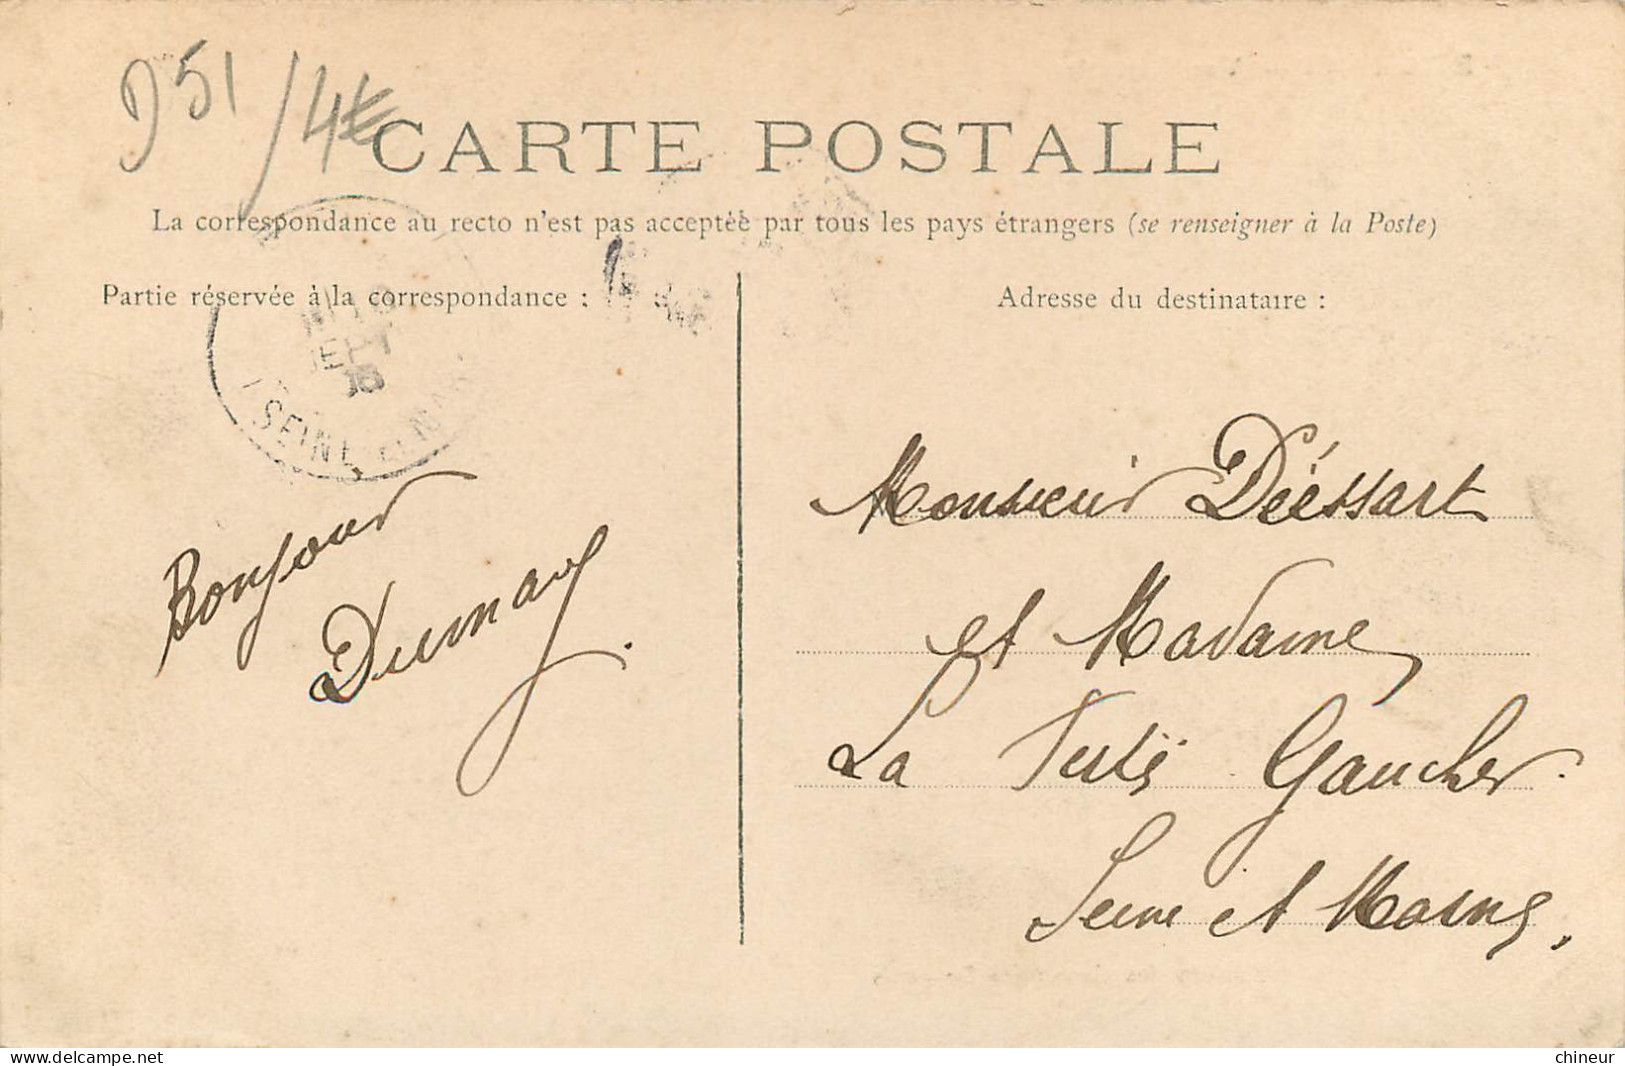 D51/4€
CARTE POSTALE
La correspondance au recto n'est pas acceptée par tous les pays étrangers (se renseigner à la Poste)
Partie réservée à la correspondance :
SEINE
Bonjour
Dumay.
Adresse du destinataire :
Monsieur Déessart
et Madame
La Ferté Gaucher.
Seine et Marne,
www.delcampe.net
chineur